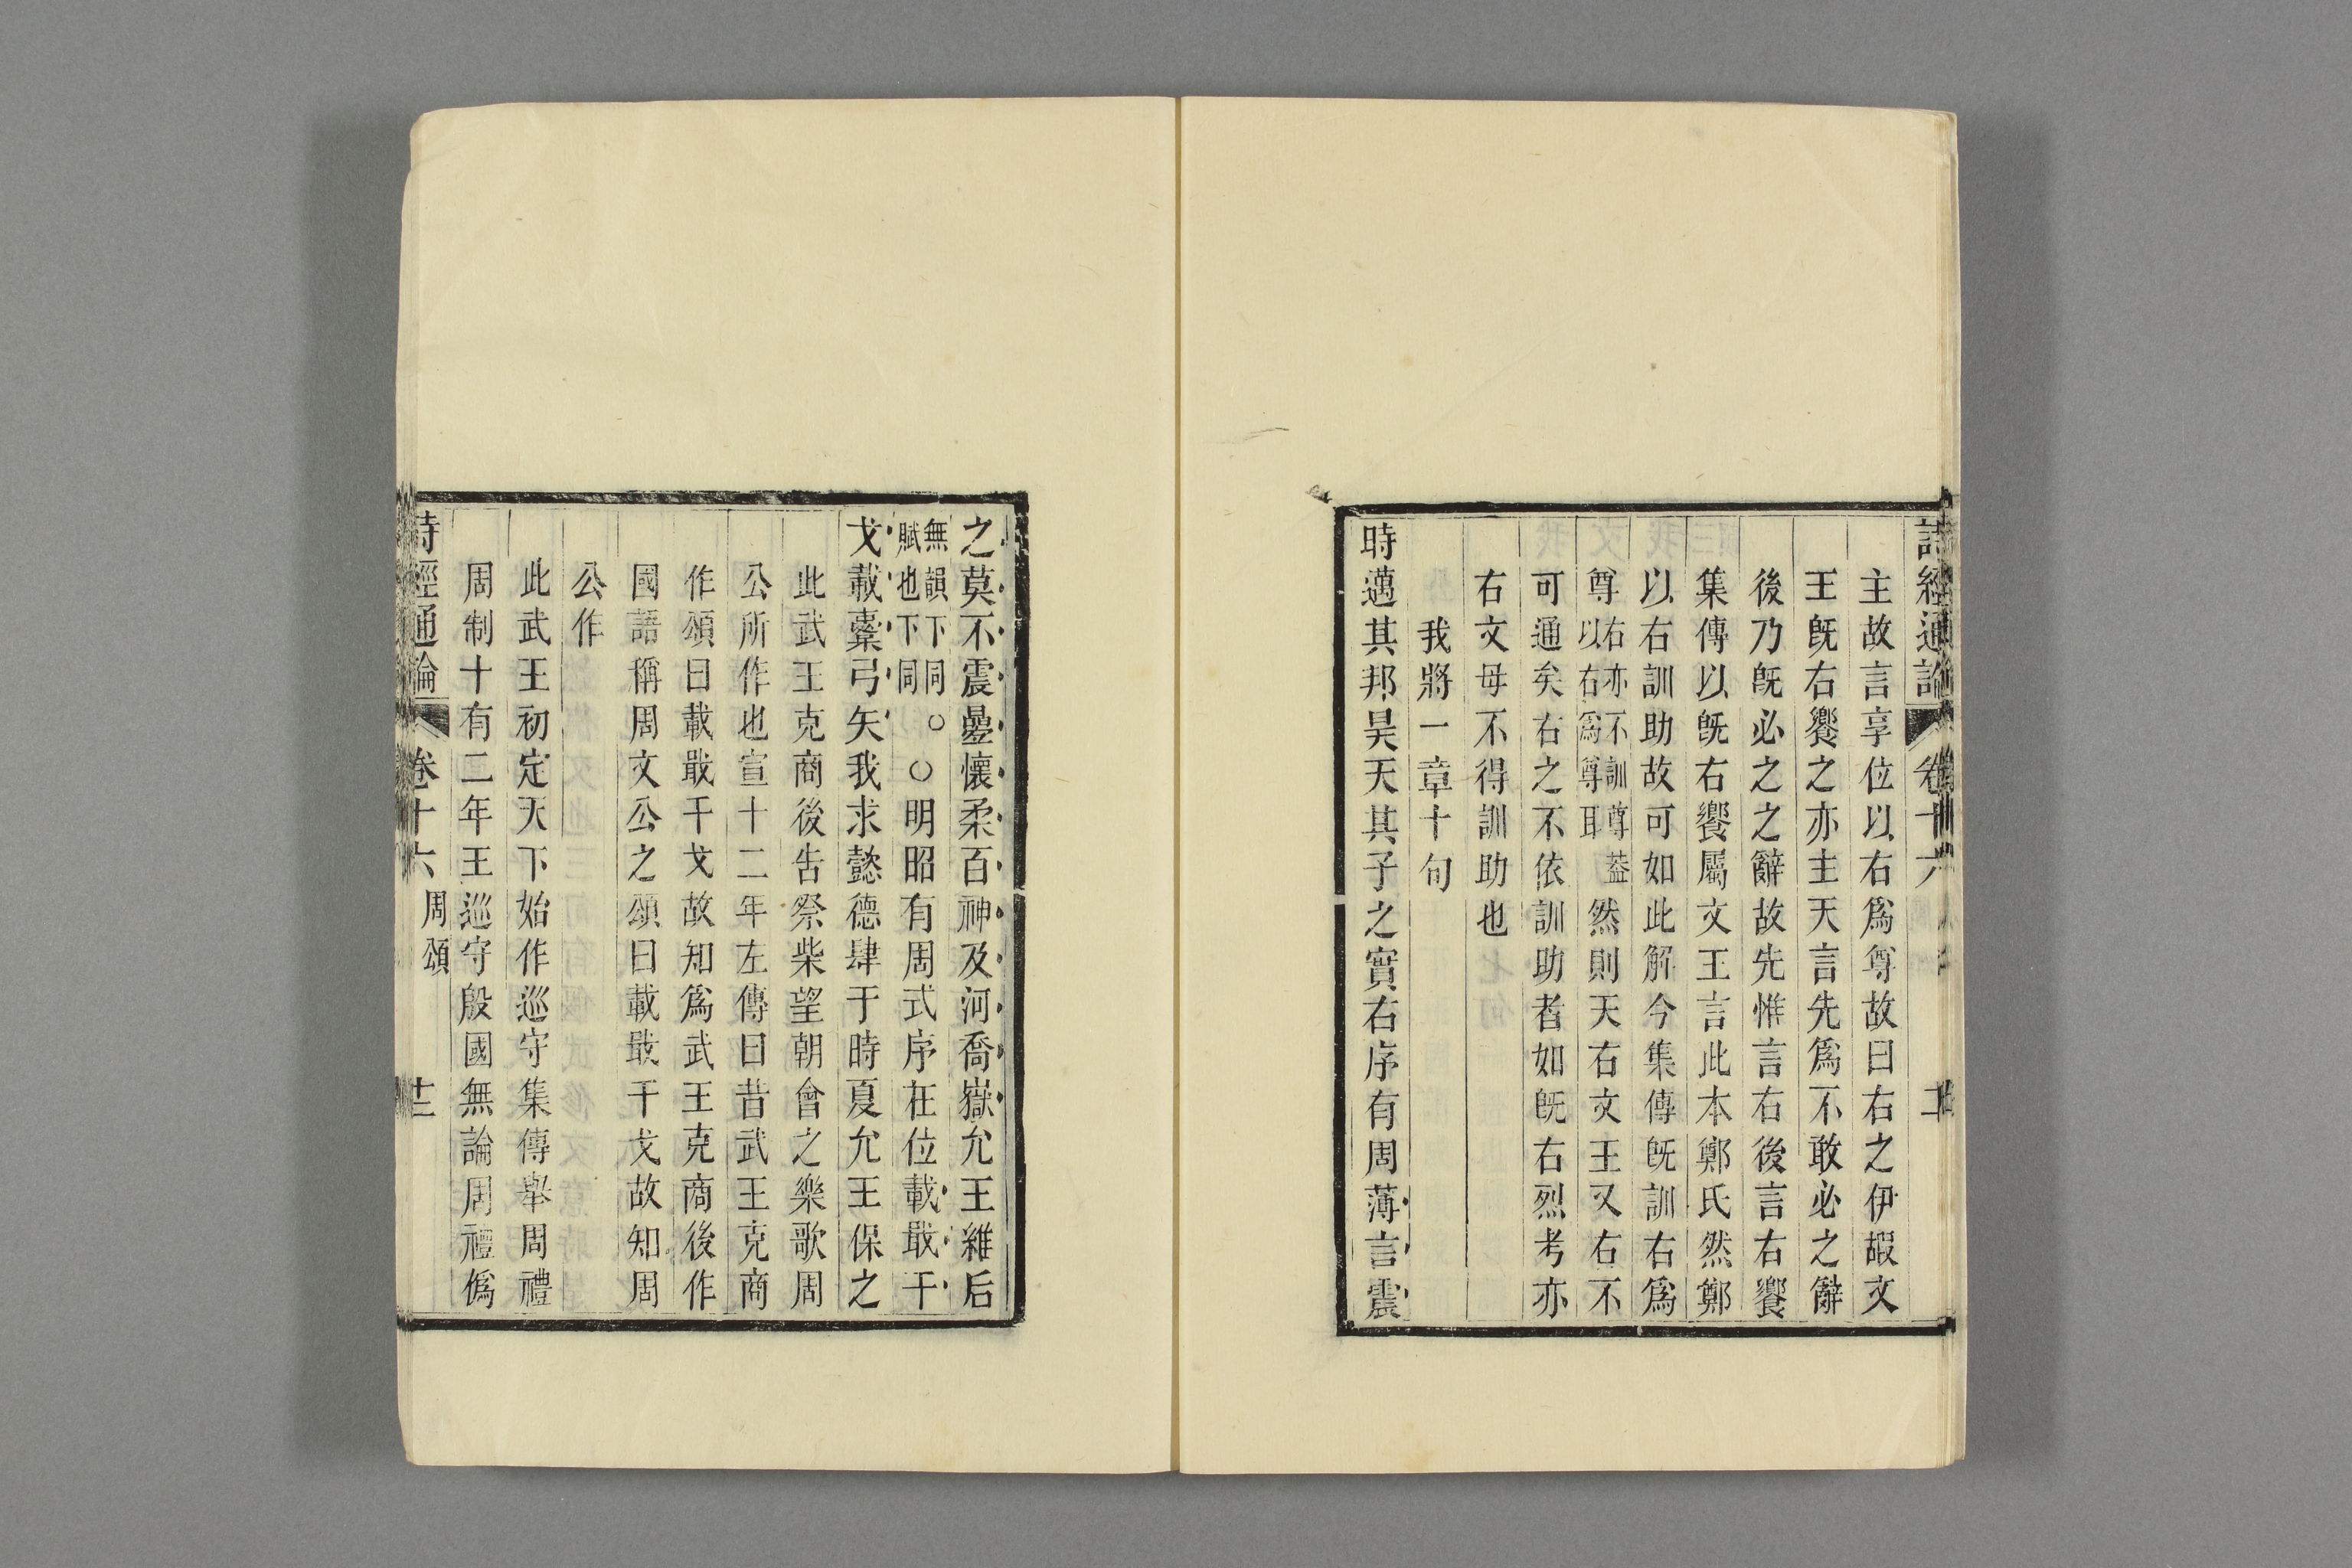 詩經通論 卷十六
主故言享位以右爲尊故曰右之伊嘏文
王旣右饗之亦主天言先爲不敢必之辭
後乃旣必之之辭故先惟言右後言右饗
集傳以旣右饗屬文王言此本鄭氏然鄭
以右訓助故可如此解今集傳旣訓右爲
尊右亦不訓尊葢以右爲尊耳然則天右文王又右不
可通矣右之不依訓助者如旣右烈考亦
右文母不得訓助也
我將一章十句
時邁其邦昊天其子之實右序有周薄言震
之莫不震疊懷柔百神及河喬嶽允王維后
無韻下同○賦也下同○明昭有周式序在位載戢干
戈載櫜弓矢我求懿德肆于時夏允王保之
此武王克商後吿祭柴望朝會之樂歌周
公所作也宣十二年左傳曰昔武王克商
作頌曰載戢干戈故知爲武王克商後作
國語稱周文公之頌曰載戢干戈故知周
公作
此武王初定天下始作巡守集傳舉周禮
周制十有二年王巡守殷國無論周禮僞
詩經通論 卷十六 周頌 十二